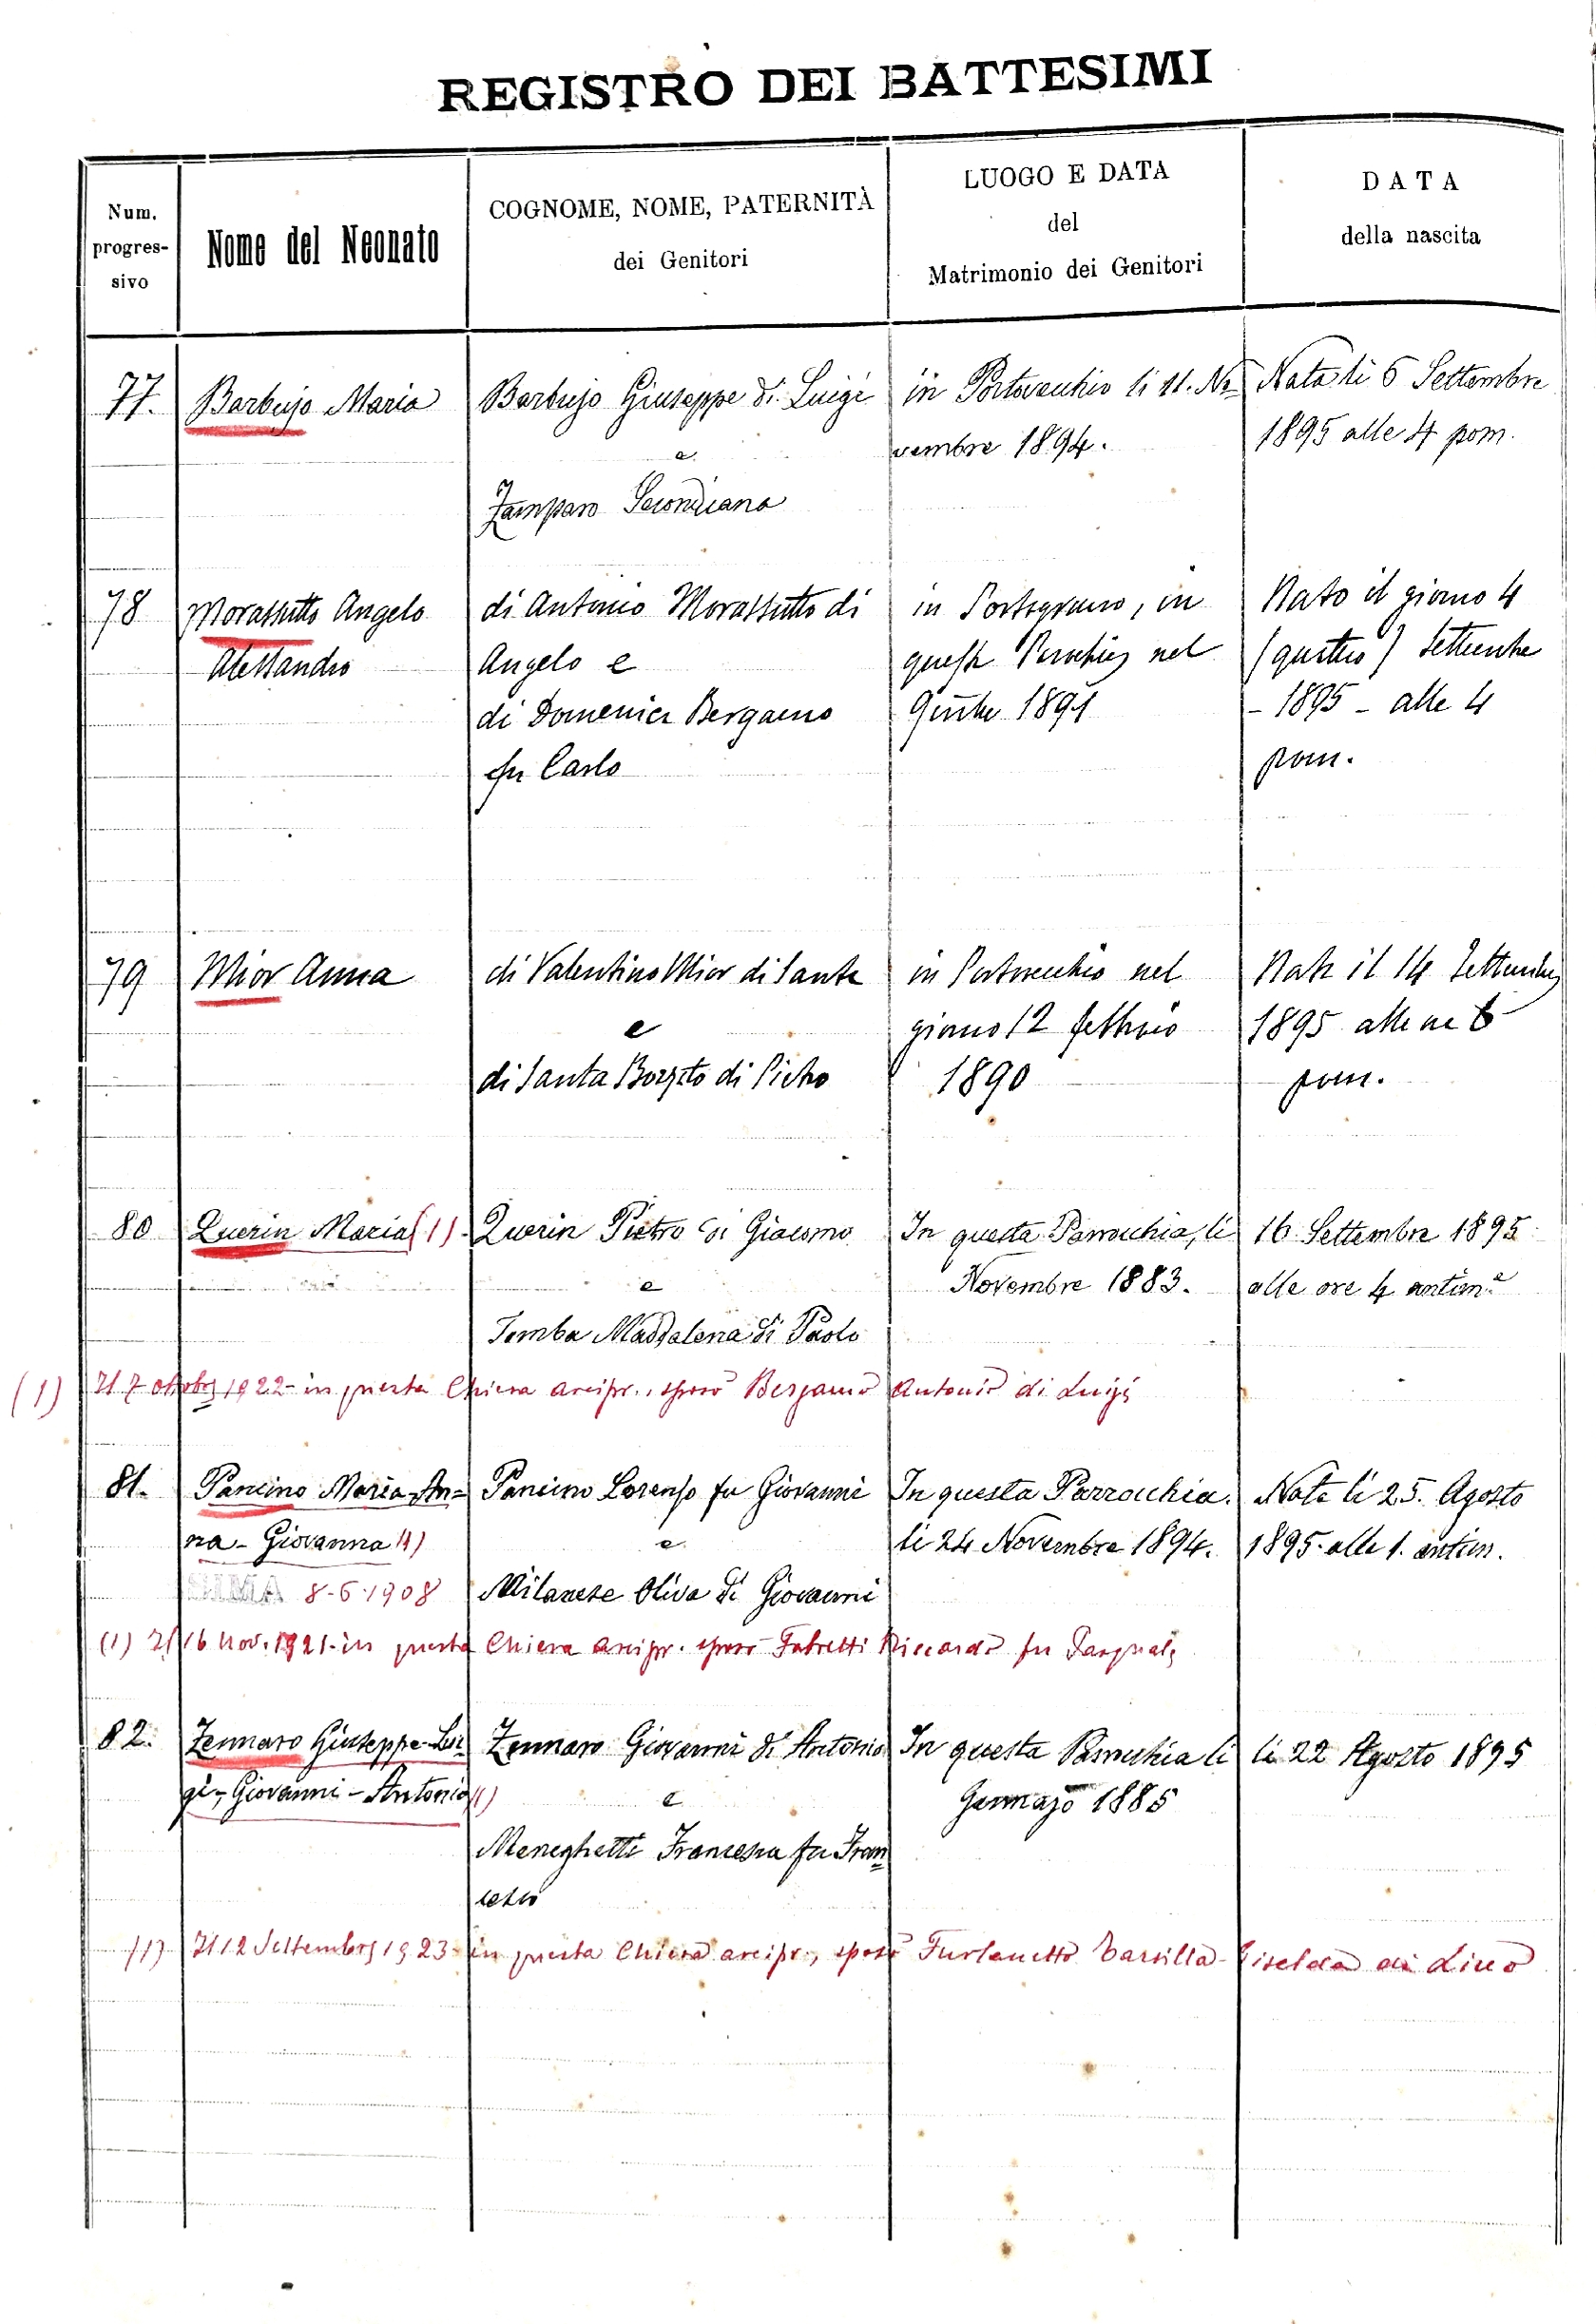 REGISTRO DEI BATTESIMI
Num. progres- sivo
Nome del Neonato
COGNOME, NOME, PATERNITÀ
dei Genitori
LUOGO E DATA
del
Matrimonio dei Genitori
DATA
della nascita
77. Barbujo Maria Barbujo Giuseppe di Luigi in Portovecchio li 11. No= Nata li 6 Settembre
e vembre 1894. 1895 alle 4 pom.
Zamparo Secondiana
78 Morassutto Angelo di Antonio Morassutto di in Portogruaro, in Nato il giorno 4
Alessandro Angelo e questa Parrochia nel (quattro) Settembre
di Domenica Bergamo 1891 - 1895 - alle 4
fu Carlo pom.
79 Mior Anna di Valentino Mior di Sante in Portovecchio nel Nata il 14 Settembre
e giorno 12 febbraio 1895 alle ore 6
di Santa di Pietro 1890 pom.
80 Querin Maria (1) Querin Pietro di Giacomo In questa Parrocchia, li 16 Settembre 1895
e Novembre 1883. alle ore 4 antim.e
Tomba Maddalena di Paolo
(1) Il 7 ottobre 1922 - in questa Chiesa arcipr., sposò Bergamo Antonio di Luigi
81. Pancino Maria-An= Pancino Lorenzo fu Giovanni In questa Parrocchia. Nata li 25. Agosto
na - Giovanna (1) e li 24 Novembre 1894. 1895. alle 1. antim.
8-6-1908 Milanese Oliva di Giovanni
(1) Il 16 Nov. 1921 - in questa Chiesa arcipr. sposò Fabretti Riccardo fu Pasquale
82. Zennaro Giuseppe-Lui= Zennaro Giovanni di Antonio In questa Parrocchia li li 22 Agosto 1895
gi - Giovanni - Antonio (1) e Gennajo 1885
Meneghetti Francesca fu Fran=
cesco
(1) Il 12 Settembre 1923 - in questa Chiesa arcipr., sposò Furlanetto Tarsilla-Giselda di Lino